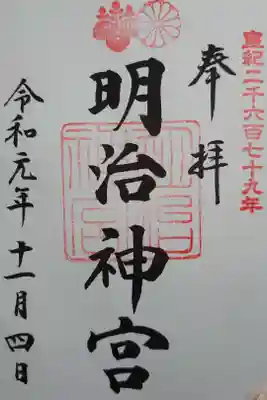 皇紀二千六百七十九年
奉拝
明治神宮
令和元年十一月四日